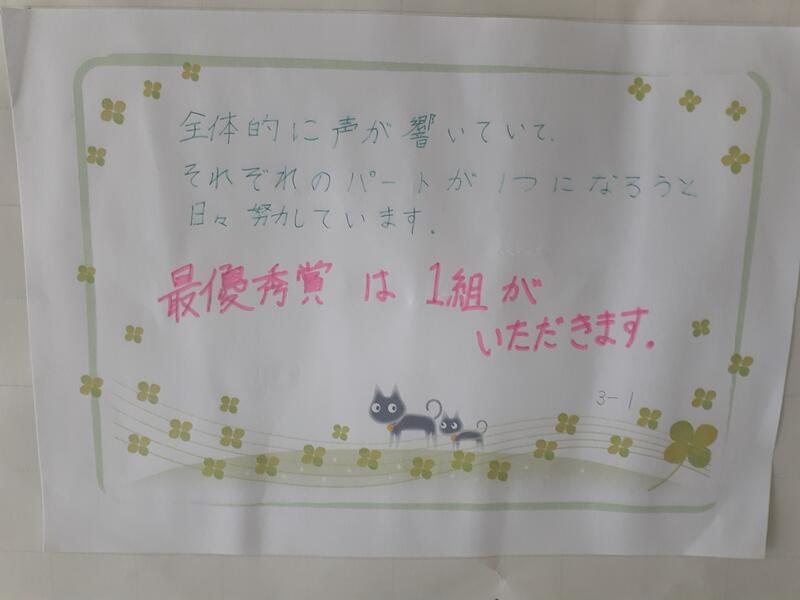 全体的に声が響いていて、
それぞれのパートが1つになろうと
日々努力しています。
最優秀賞は1組が
いただきます。
3-1